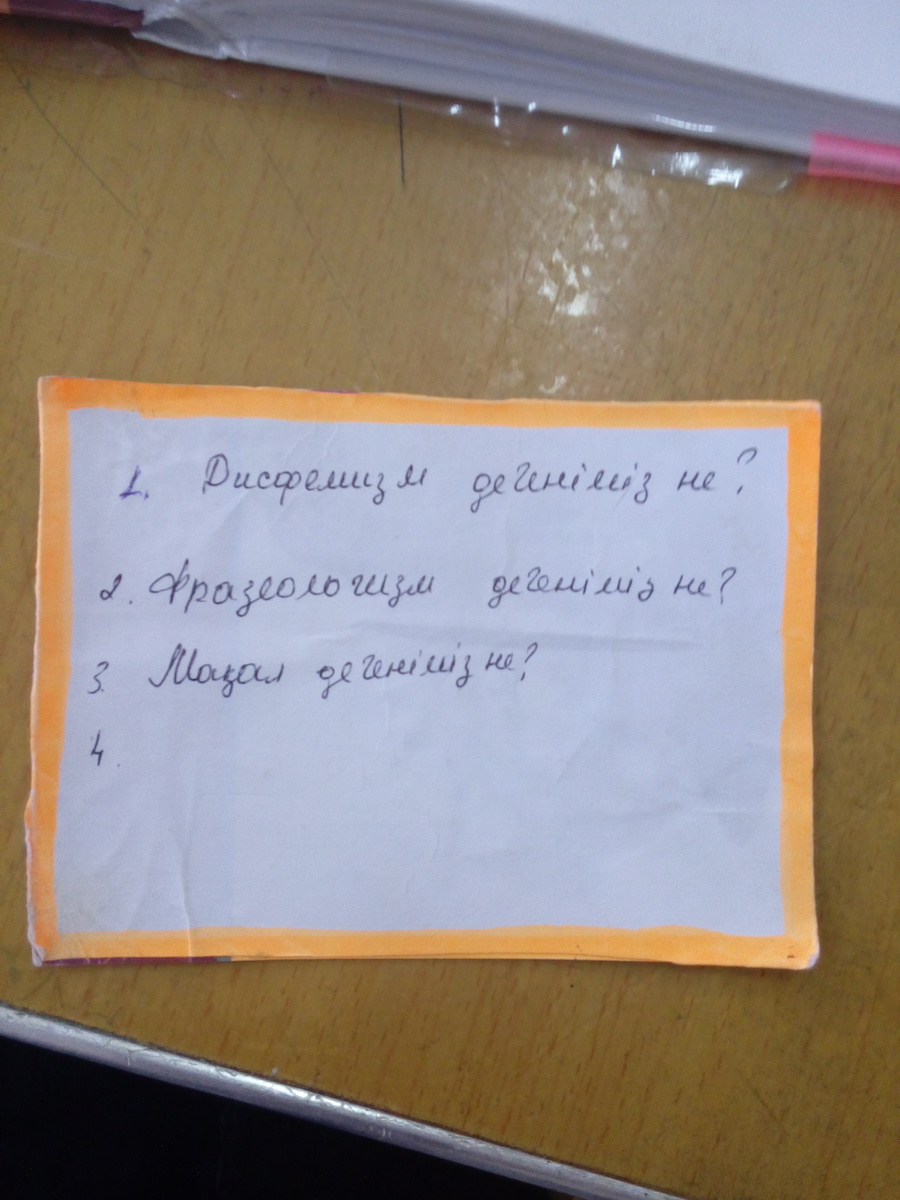 1. Дисфемизм дегеніміз не?
2. Фразеологизм дегеніміз не?
3. Мақал дегеніміз не?
4.